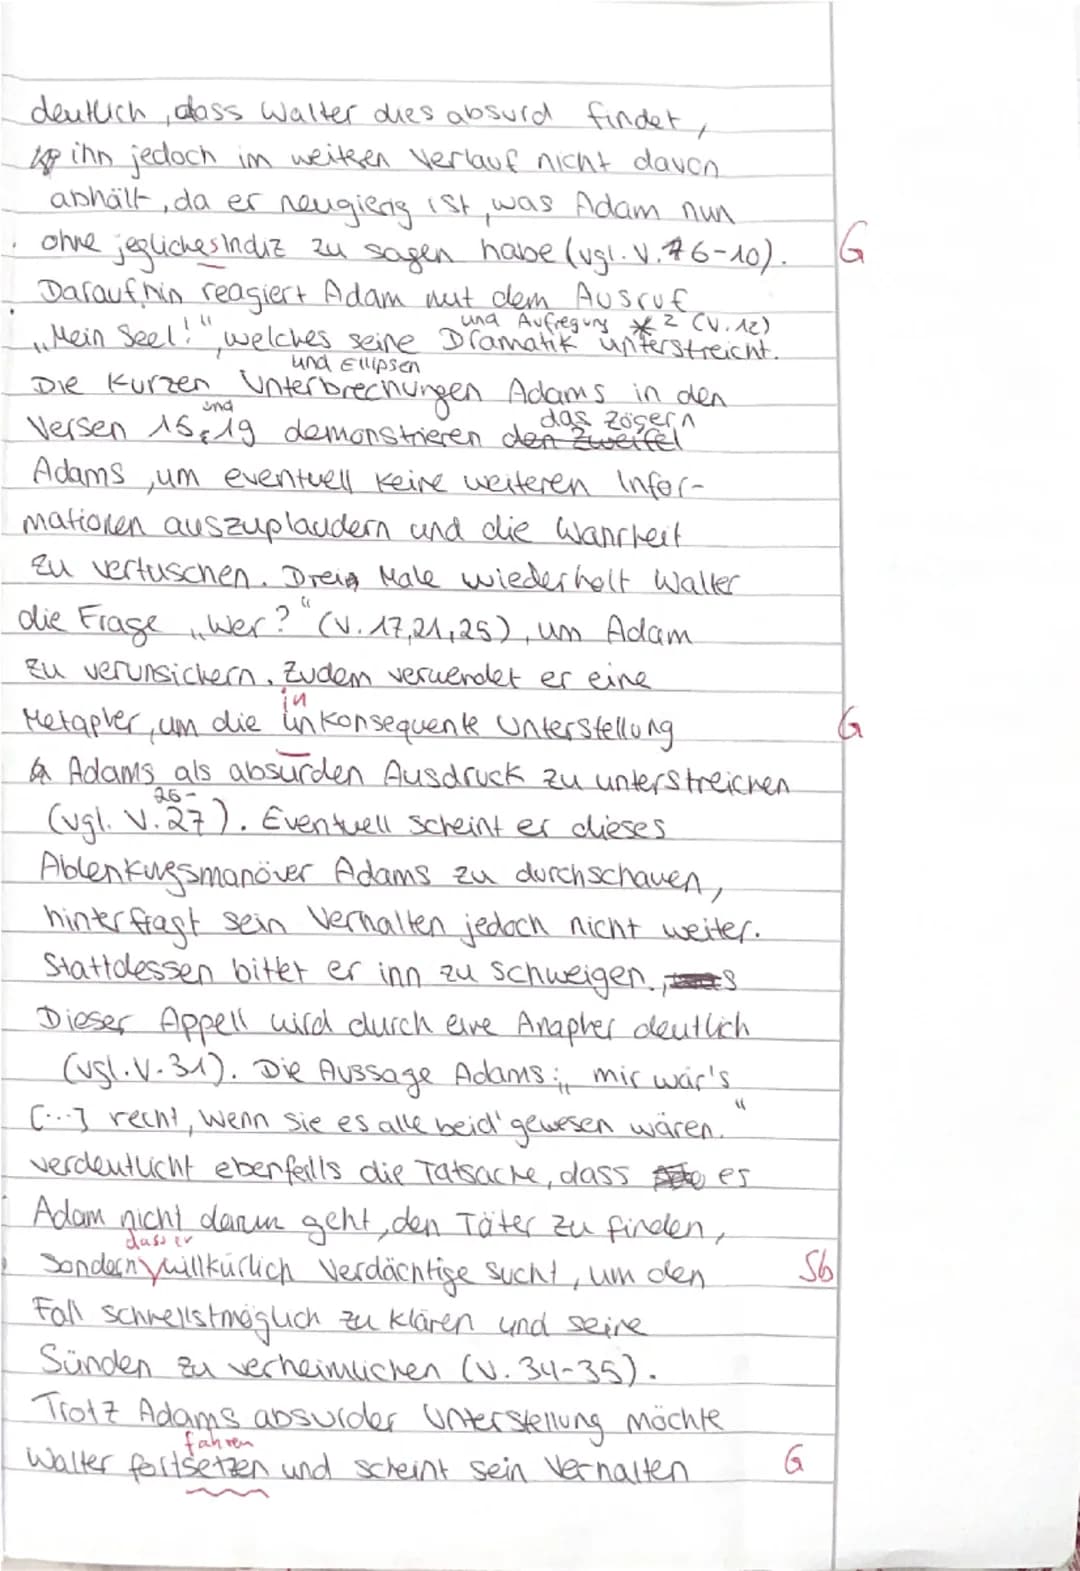 deutlich, dass Walter dies absurd findet,
ihn jedoch im weiteren Verlauf nicht davon
abhält, da er neugierig ist, was Adam nun
ohne jegliches Indiz zu sagen habe (vgl. V. 6-10). G
Daraufhin reagiert Adam mit dem Ausruf
und Aufregung *² (V. 12)
„Mein Seel!", welches seine Dramatik unterstreicht.
und Ellipsen
Die kurzen Unterbrechungen Adams in den
und das Zögern
Versen 15, 19 demonstrieren den Zweifel
Adams, um eventuell keine weiteren Infor-
mationen auszuplaudern und die Wahrheit
zu vertuschen. Drei Male wiederholt Walter
die Frage „Wer?" (V. 17, 21, 25), um Adam
zu verunsichern. Zudem verwendet er eine
in
Metapher, um die unkonsequente Unterstellung G
Adams als absurden Ausdruck zu unterstreichen
26-
(vgl. V. 27). Eventuell scheint er dieses
Ablenkungsmanöver Adams zu durchschauen,
hinterfragt sein Verhalten jedoch nicht weiter.
Stattdessen bittet er ihn zu schweigen.
Dieser Appell wird durch eine Anapher deutlich
(vgl. V. 31). Die Aussage Adams: „mir wär's
[...] recht, wenn sie es alle beid' gewesen wären."
verdeutlicht ebenfalls die Tatsache, dass es
Adam nicht darum geht, den Täter zu finden,
dass er
sondern willkürlich Verdächtige sucht, um den Sb
Fall schnellstmöglich zu klären und seine
Sünden zu verheimlichen (V. 34-35).
Trotz Adams absurder Unterstellung möchte
fahren
Walter fortsetzen und scheint sein Verhalten G